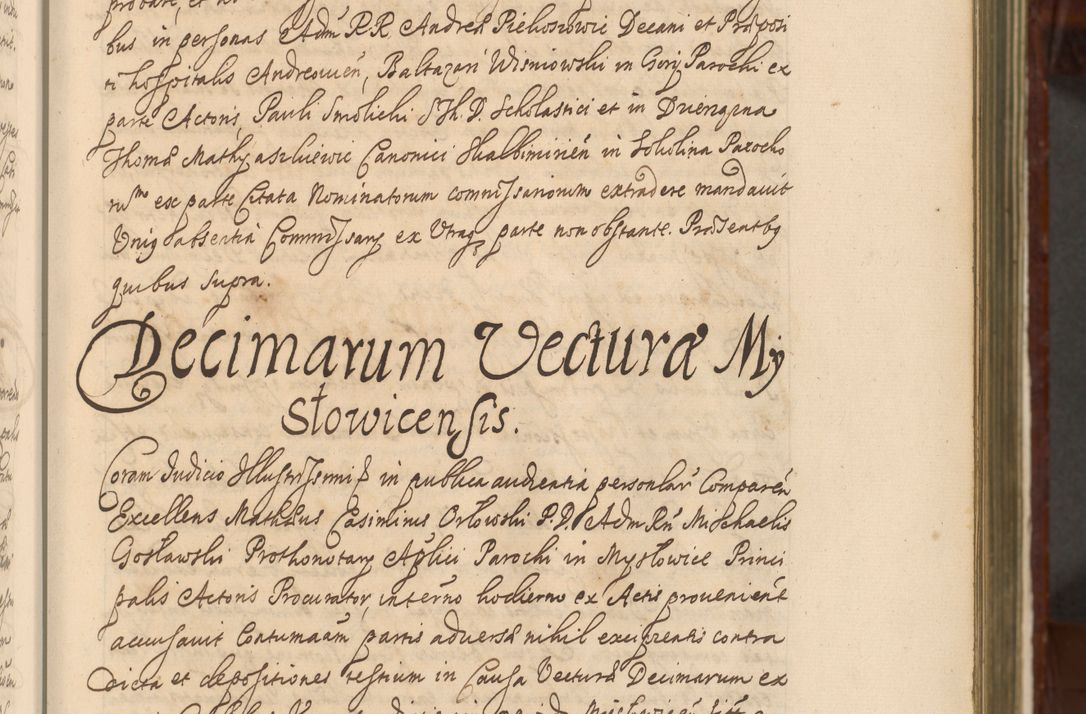 bus in personas Adm RR. Andreæ Piekoszowic Decani et Præposi
ti hospitalis Andreouień, Baltazari Wisniowski in Gory Parochi ex
parte Actoris, Pauli Smolicki S Th. D. Scholastici et in
Thomæ Mathyaszkiewic Canonici Skalbimirień in Sokolina Parocho
ru^m ex parte Citata Nominatorum commissariorum extradere mandauit
Vnig absentia Commissary ex Vtraq parte non obstante. Præsentibq
quibus supra.
Decimarum Vecturæ My
słowicensis.
Coram Judicio Illustrissimi in publica audientia personlar Comparen
Excellens Mathæus Casimirus Orłowski P. D. Adm Rń Michaelis
Gosławski Prothonotary Aplici Parochi in Mysłowice Princi
palis Actoris Procurator, interno hodierno ex Actis proueniente
accusauit Contumatiam partis aduersæ nihil excipientis contra
dicta et depositiones testium in Causa Vecturæ Decimarum ex